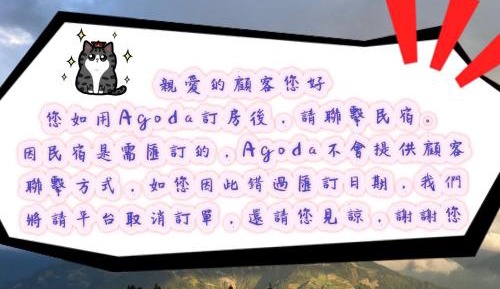 親愛的顧客您好
您如用Agoda訂房後，請聯繫民宿。
因民宿是需匯訂的，Agoda不會提供顧客
聯繫方式，如您因此錯過匯訂日期，我們
將請平台取消訂單，還請您見諒，謝謝您